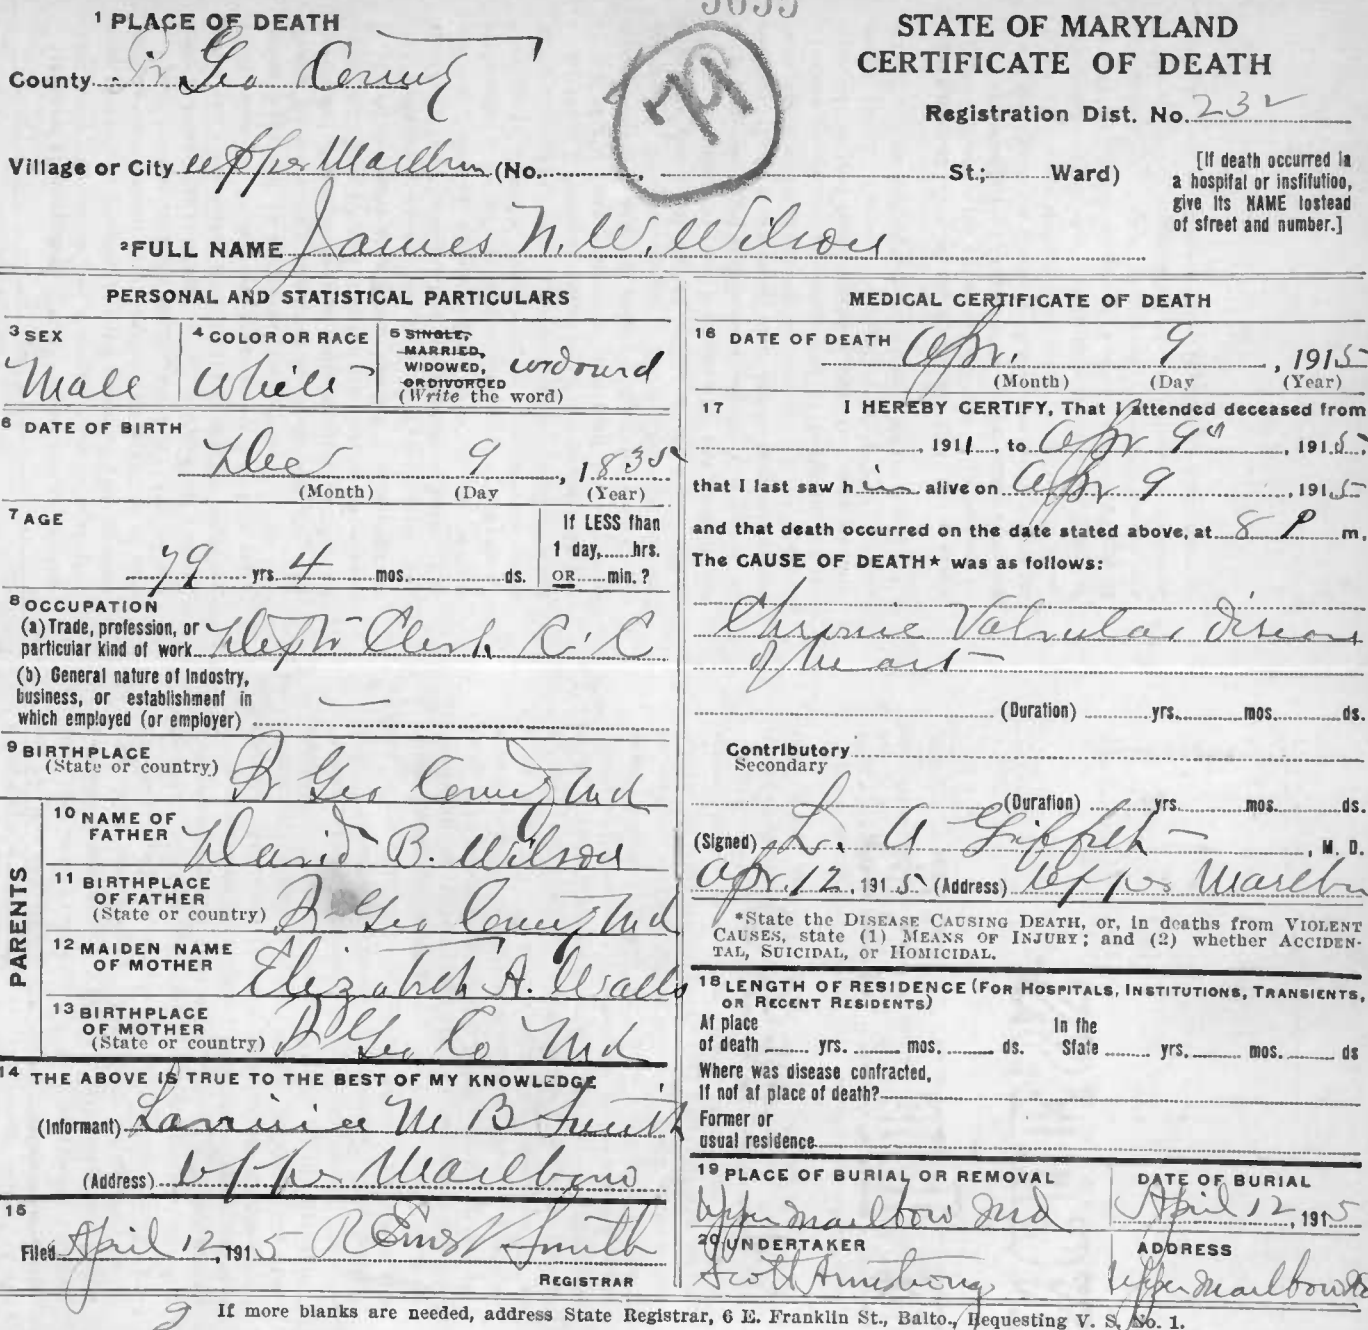 1 PLACE OF DEATH
County Pr Geo County
Village or City Upper Marlboro (No. , St.; Ward)
79
STATE OF MARYLAND
CERTIFICATE OF DEATH
Registration Dist. No. 232
[If death occurred in
a hospital or institution,
give its NAME instead
of street and number.]
2 FULL NAME James N. W. Wilson
PERSONAL AND STATISTICAL PARTICULARS
3 SEX
Male
4 COLOR OR RACE
White
5 SINGLE,
MARRIED,
WIDOWED,
OR DIVORCED
(Write the word)
widowed
6 DATE OF BIRTH
Dec 9, 1835
(Month) (Day (Year)
7 AGE
79 yrs 4 mos. ds.
If LESS than
1 day, hrs.
OR min.?
8 OCCUPATION
(a) Trade, profession, or
particular kind of work Clerk C. C
(b) General nature of Industry,
business, or establishment in
which employed (or employer) —
9 BIRTHPLACE
(State or country) Pr Geo County Md
PARENTS
10 NAME OF
FATHER David B. Wilson
11 BIRTHPLACE
OF FATHER
(State or country) Pr Geo County Md
12 MAIDEN NAME
OF MOTHER Elizabeth A. Walls
13 BIRTHPLACE
OF MOTHER
(State or country) Pr Geo Co Md
14 THE ABOVE IS TRUE TO THE BEST OF MY KNOWLEDGE
(Informant) M B Smith
(Address) Upper Marlboro
15
Filed April 12, 1915 R Ernest Smith
REGISTRAR
MEDICAL CERTIFICATE OF DEATH
16 DATE OF DEATH
Apr. 9, 1915
(Month) (Day (Year)
17 I HEREBY CERTIFY, That I attended deceased from
, 1911, to Apr 9th, 1915,
that I last saw him alive on Apr 9, 1915
and that death occurred on the date stated above, at 8 P m.
The CAUSE OF DEATH* was as follows:
Chronic Valvular Disease
of heart
(Duration) yrs. mos. ds.
Contributory
Secondary
(Duration) yrs. mos. ds.
(Signed) L. A Griffith, M. D.
Apr. 12, 1915 (Address) Upper Marlboro
*State the DISEASE CAUSING DEATH, or, in deaths from VIOLENT
CAUSES, state (1) MEANS OF INJURY; and (2) whether ACCIDEN-
TAL, SUICIDAL, or HOMICIDAL.
18 LENGTH OF RESIDENCE (FOR HOSPITALS, INSTITUTIONS, TRANSIENTS,
OR RECENT RESIDENTS)
At place In the
of death yrs. mos. ds. State yrs. mos. ds
Where was disease contracted,
If not at place of death?
Former or
usual residence
19 PLACE OF BURIAL OR REMOVAL
Upper Marlboro Md
DATE OF BURIAL
April 12, 1915
20 UNDERTAKER
Scott Armstrong
ADDRESS
Upper Marlboro Md
If more blanks are needed, address State Registrar, 6 E. Franklin St., Balto., Requesting V. S. No. 1.